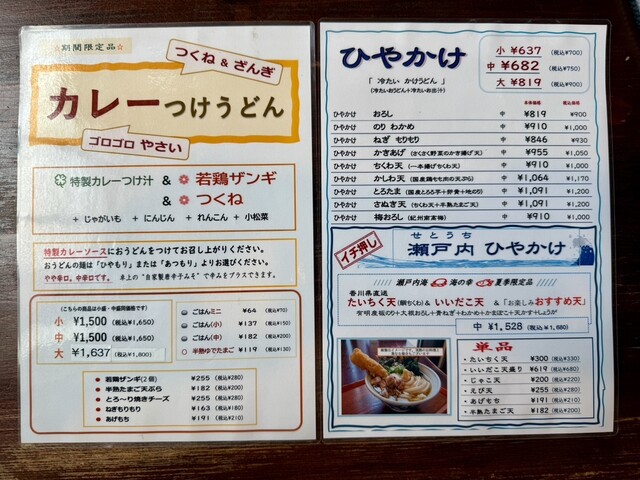 ☆期間限定品☆
つくね & ざんぎ
カレーつけうどん
ゴロゴロ やさい
特製カレーつけ汁 & 若鶏ザンギ
& つくね
+ じゃがいも + にんじん + れんこん + 小松菜
特製カレーソースにおうどんをつけてお召し上がりください。
おうどんの麺は「ひやもり」または「あつもり」よりお選びください。
やや辛口。中辛口です。 卓上の"自家製唐辛子みそ"で辛みをプラスできます。
(こちらの商品は小盛・中盛同価格です)
小 ¥1,500 (税込¥1,650)
中 ¥1,500 (税込¥1,650)
大 ¥1,637 (税込¥1,800)
ごはんミニ ¥64 (税込¥70)
ごはん(小) ¥137 (税込150)
ごはん(中) ¥182 (税込¥200)
半熟ゆでたまご ¥119 (税込¥130)
若鶏ザンギ(2個) ¥255 (税込¥280)
半熟たまご天ぷら ¥182 (税込¥200)
とろ~り焼きチーズ ¥255 (税込¥280)
ねぎもりもり ¥163 (税込¥180)
あげもち ¥191 (税込¥210)
ひやかけ
「 冷たい かけうどん 」
(冷たいおうどん+冷たいお出汁)
小 ¥637 (税込¥700)
中 ¥682 (税込¥750)
大 ¥819 (税込¥900)
本体価格 税込価格
ひやかけ おろし 中 ¥819 ¥900
ひやかけ のり わかめ 中 ¥910 ¥1,000
ひやかけ ねぎ もりもり 中 ¥846 ¥930
ひやかけ かきあげ (さくさく野菜のかき揚げ天) 中 ¥955 ¥1,050
ひやかけ ちくわ天 (一本揚げちくわ天) 中 ¥910 ¥1,000
ひやかけ かしわ天 (国産鶏もも肉の天ぷら) 中 ¥1,064 ¥1,170
ひやかけ とろたま (国産とろろ芋+卵黄+地のり) 中 ¥1,091 ¥1,200
ひやかけ さぬき天 (ちくわ天+半熟たまご天) 中 ¥1,091 ¥1,200
ひやかけ 梅おろし (紀州南高梅) 中 ¥910 ¥1,000
イチ押し
せとうち
瀬戸内 ひやかけ
瀬戸内海 海の幸 夏季限定品
香川県直送
たいちく天 (鯛ちくわ) & いいだこ天 & 「お楽しみおすすめ天」
有明産板のり+大根おろし+青ねぎ+わかめ+かまぼこ+天かす+しょうが
中 ¥1,528 (税込¥1,680)
単品
・たいちく天 ¥300 (税込¥330)
・いいだこ天盛り ¥619 (税込¥680)
・じゃこ天 ¥200 (税込¥220)
・えび天 ¥255 (税込¥280)
・あげもち ¥191 (税込¥210)
・半熟たまご天 ¥182 (税込¥200)